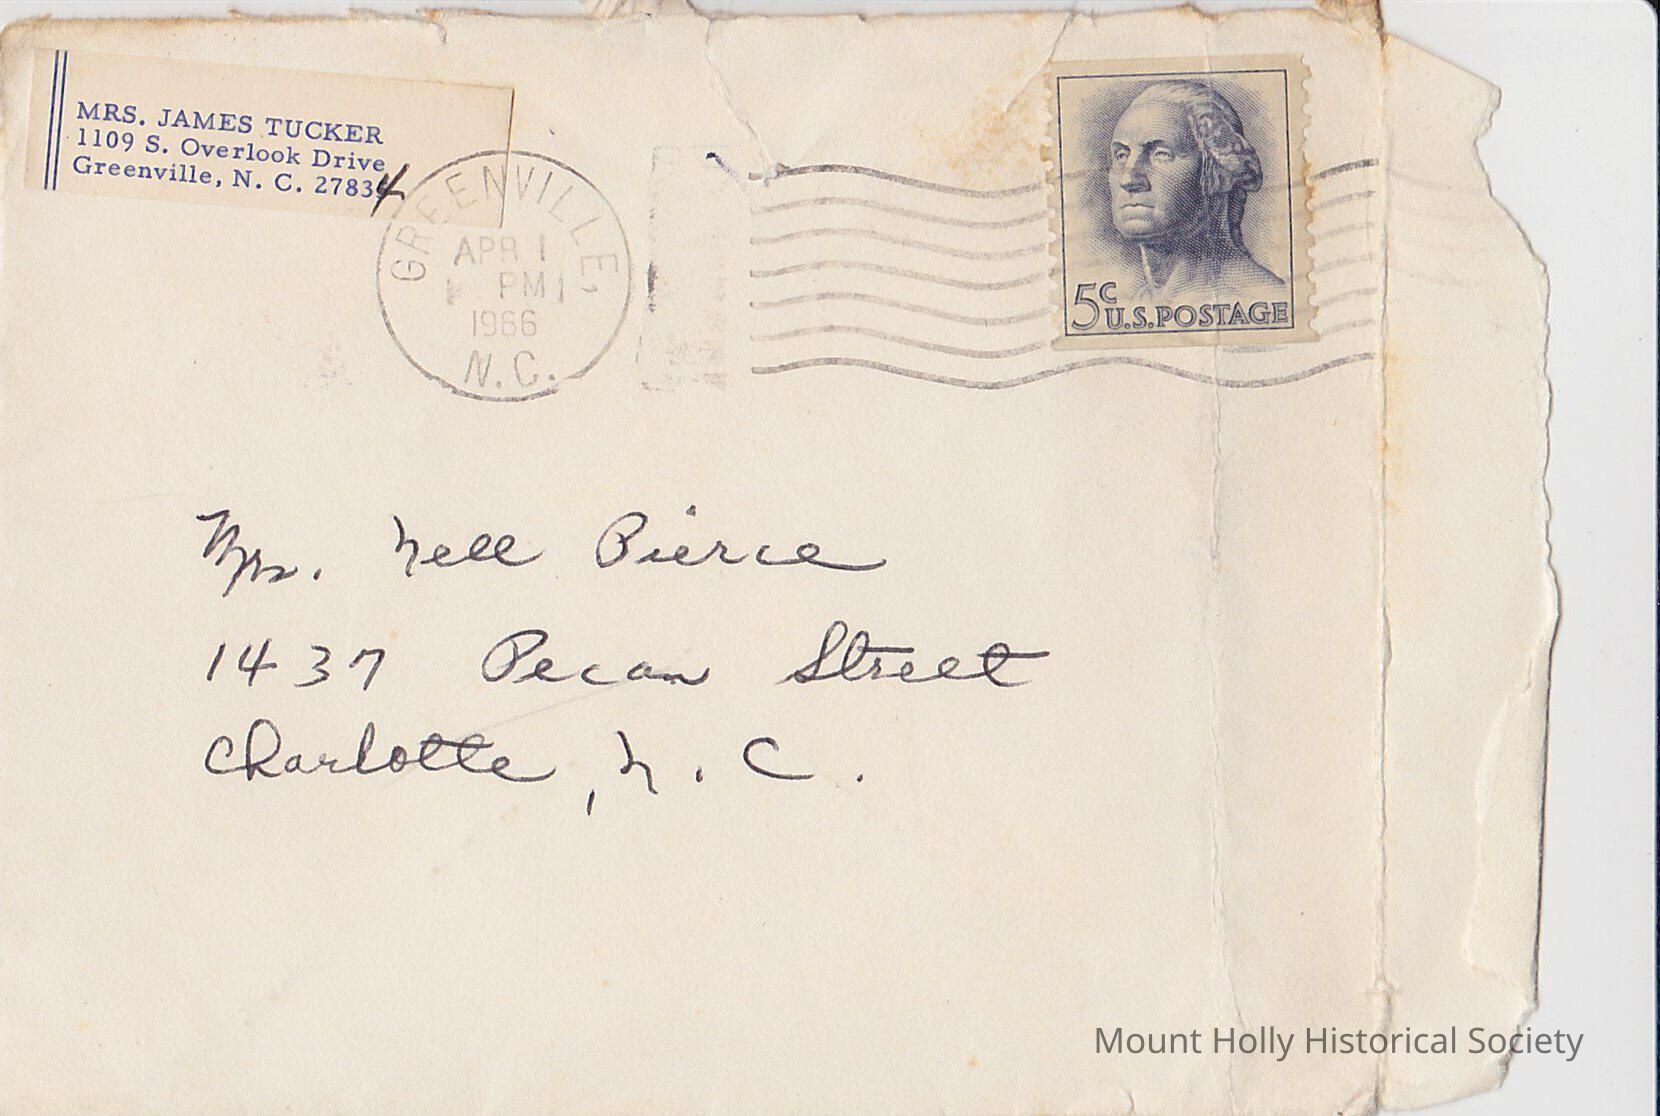 MRS. JAMES TUCKER
1109 S. Overlook Drive
Greenville, N. C. 27834
GREENVILLE,
APR 1
PM
1966
N.C.
5c
U.S.POSTAGE
Mrs. Nell Pierce
1437 Pecan Street
Charlotte, N. C.
Mount Holly Historical Society